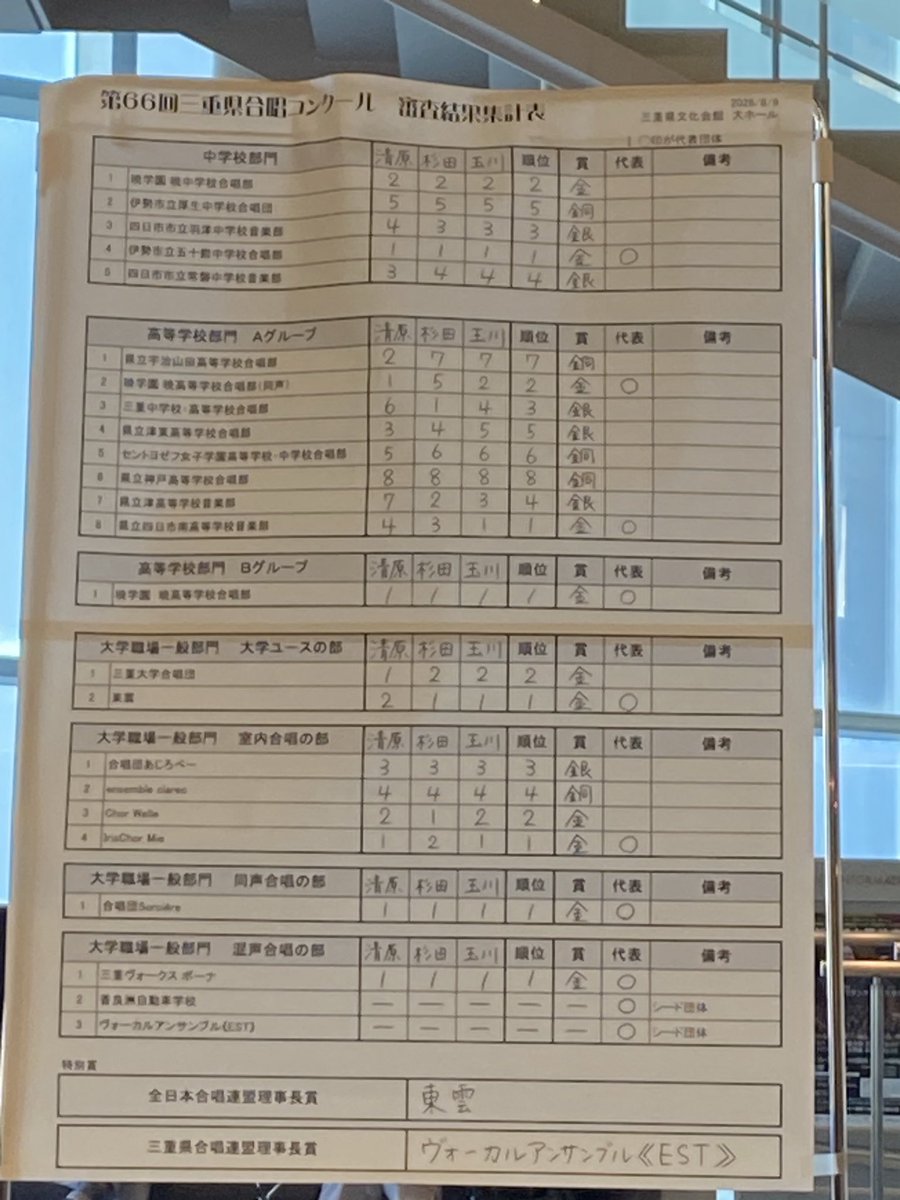 第66回三重県合唱コンクール 審査結果集計表
2026/8/9
三重県文化会館 大ホール
○印が代表団体
中学校部門 清原 杉田 玉川 順位 賞 代表 備考
1 暁学園 暁中学校合唱部 2 2 2 2 金
2 伊勢市立厚生中学校合唱団 5 5 5 5 銅
3 四日市市立羽津中学校音楽部 4 3 3 3 銀
4 伊勢市立五十鈴中学校合唱部 1 1 1 1 金 ○
5 四日市市立常磐中学校音楽部 3 4 4 4 銀
高等学校部門 Aグループ 清原 杉田 玉川 順位 賞 代表 備考
1 県立宇治山田高等学校合唱部 2 7 7 7 銅
2 暁学園 暁高等学校合唱部(同声) 1 5 2 2 金 ○
3 三重中学校・高等学校合唱部 6 1 4 3 銀
4 県立津東高等学校合唱部 3 4 5 5 銀
5 セントヨゼフ女子学園高等学校・中学校合唱部 5 6 6 6 銅
6 県立神戸高等学校合唱部 8 8 8 8 銅
7 県立津高等学校音楽部 7 2 3 4 銀
8 県立四日市南高等学校音楽部 4 3 1 1 金 ○
高等学校部門 Bグループ 清原 杉田 玉川 順位 賞 代表 備考
1 暁学園 暁高等学校合唱部 1 1 1 1 金 ○
大学職場一般部門 大学ユースの部 清原 杉田 玉川 順位 賞 代表 備考
1 三重大学合唱団 1 2 2 2 金
2 東雲 2 1 1 1 金 ○
大学職場一般部門 室内合唱の部 清原 杉田 玉川 順位 賞 代表 備考
1 合唱団あじろべー 3 3 3 3 銀
2 ensemble ciareo 4 4 4 4 銅
3 Chor Welle 2 1 2 2 金
4 IrisChor Mie 1 2 1 1 金 ○
大学職場一般部門 同声合唱の部 清原 杉田 玉川 順位 賞 代表 備考
1 合唱団Sorcière 1 1 1 1 金 ○
大学職場一般部門 混声合唱の部 清原 杉田 玉川 順位 賞 代表 備考
1 三重ヴォークス ボーナ 1 1 1 1 金 ○
2 香良洲自動車学校 ー ー ー ー ー ○ シード団体
3 ヴォーカルアンサンブル《EST》 ー ー ー ー ー ○ シード団体
特別賞
全日本合唱連盟理事長賞 東雲
三重県合唱連盟理事長賞 ヴォーカルアンサンブル《EST》